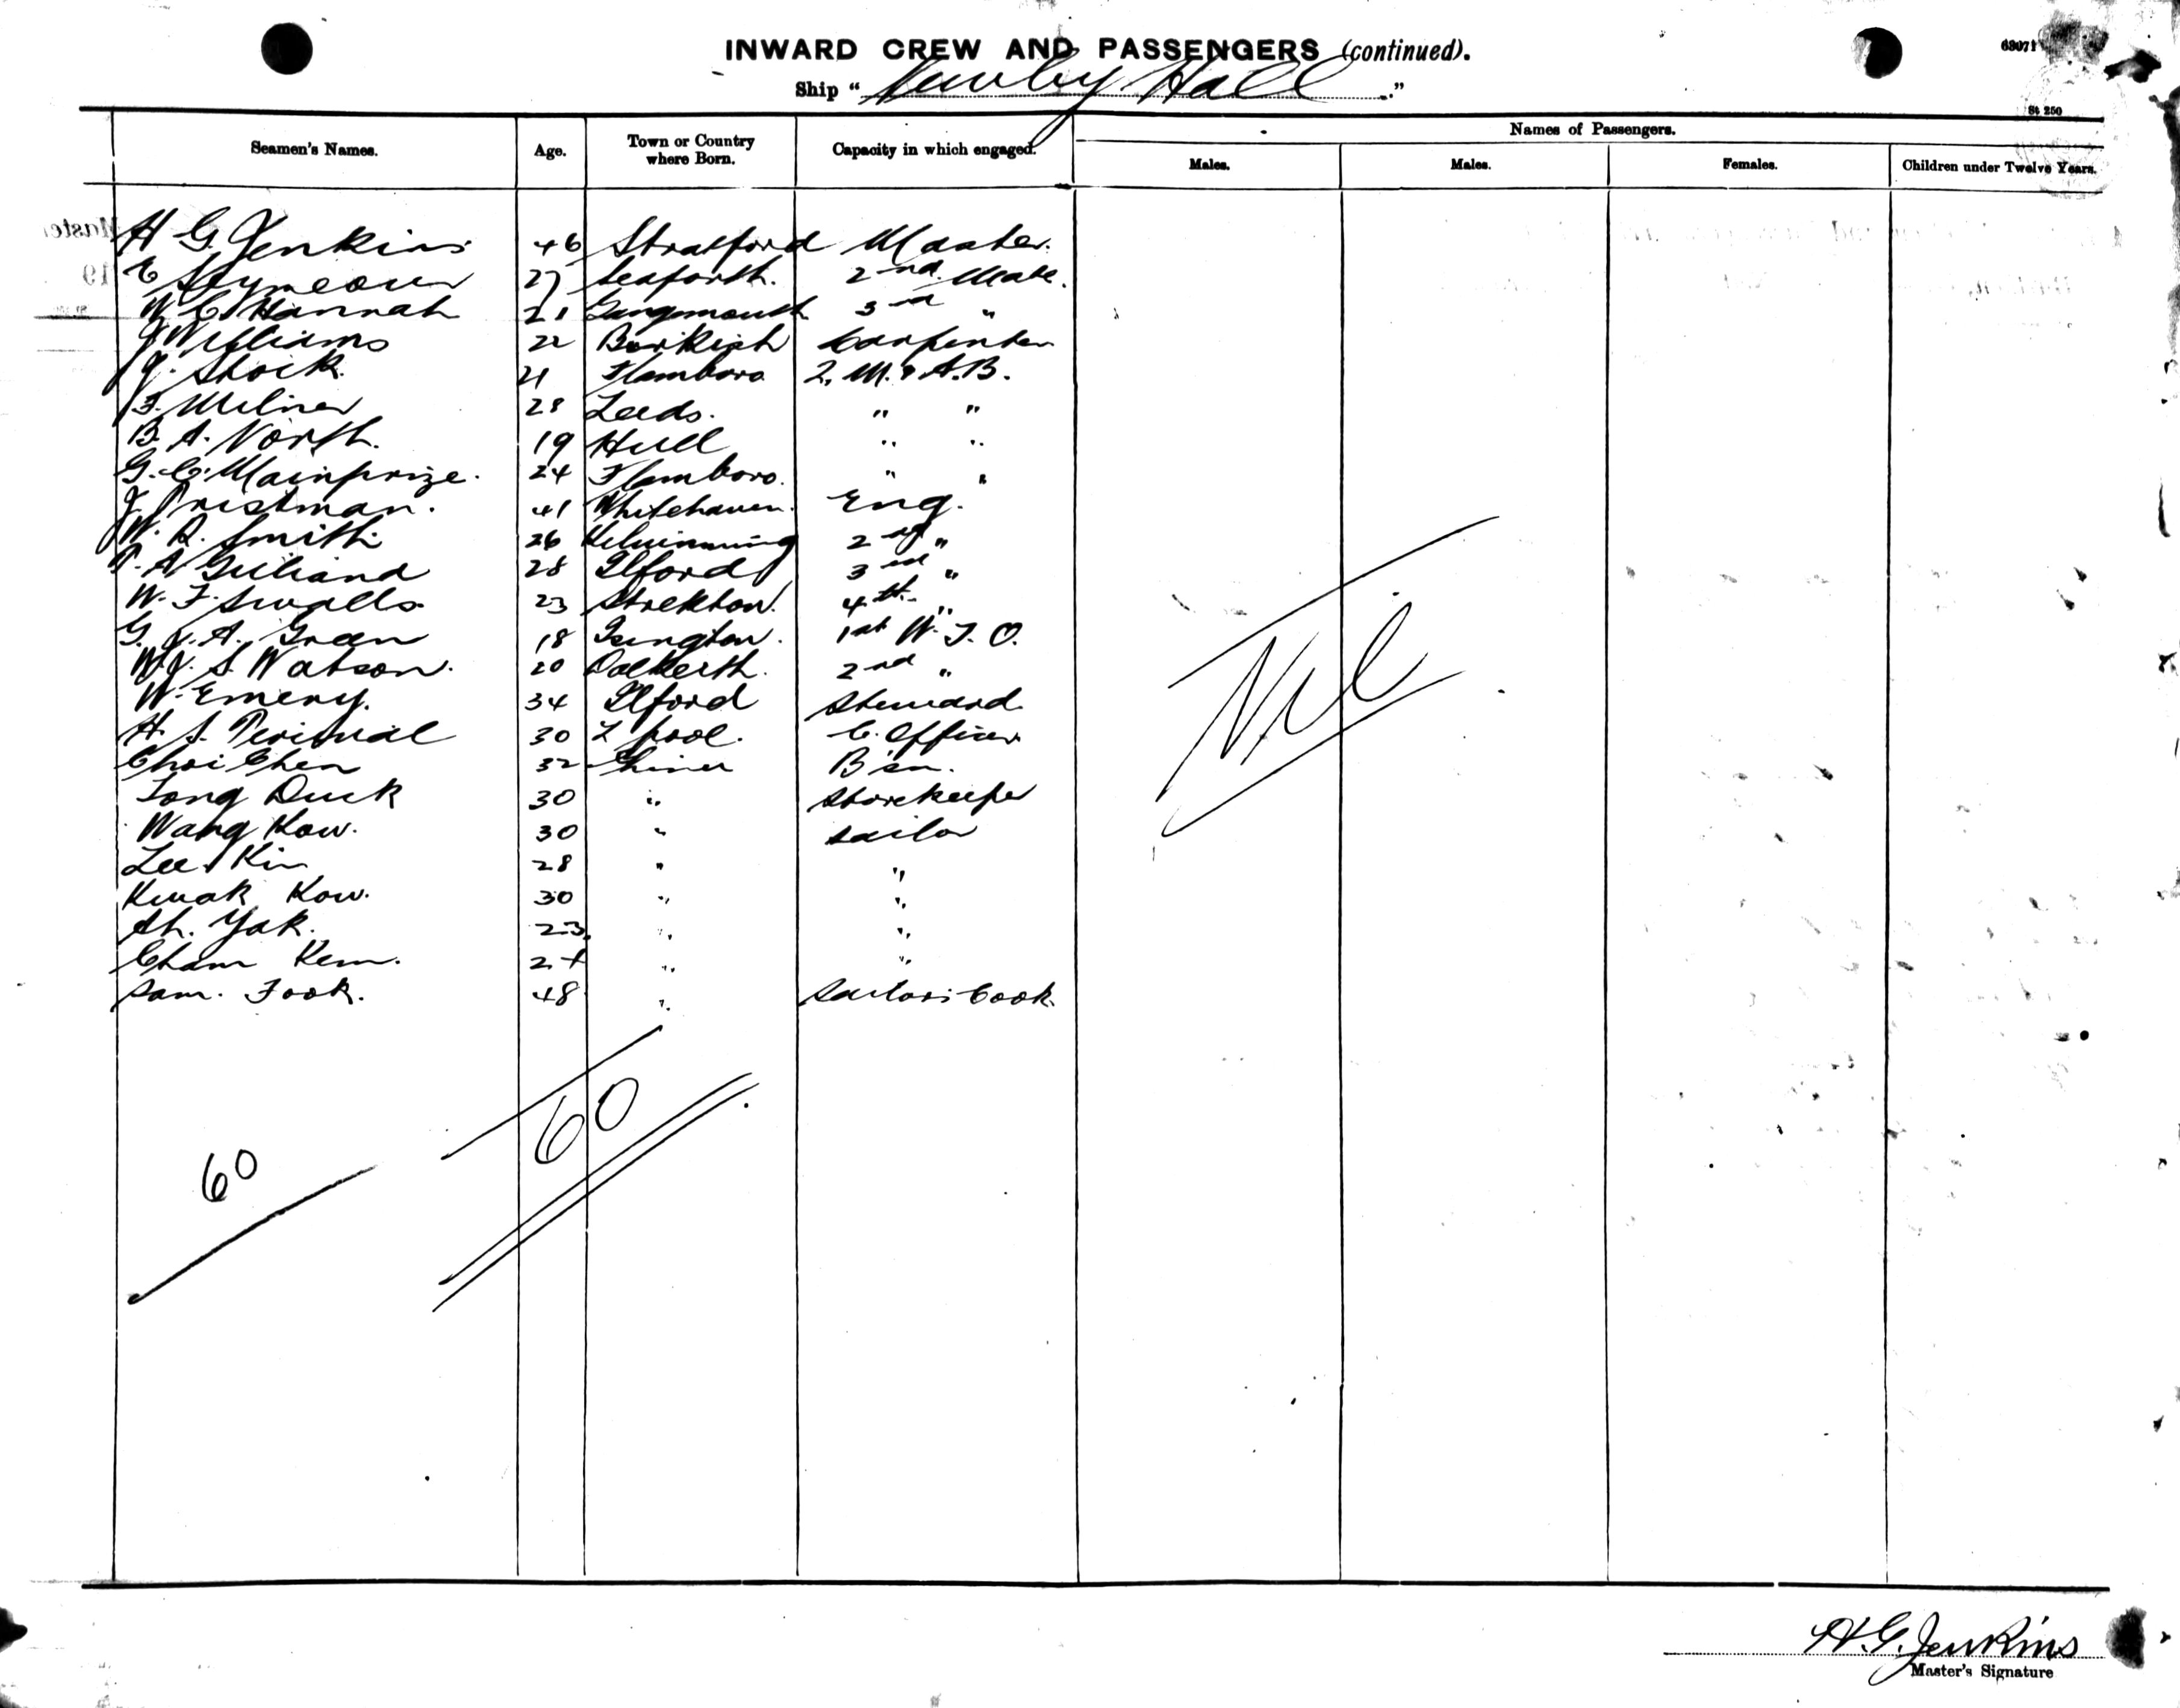 INWARD CREW AND PASSENGERS (continued).
68071
Ship "Newby Hall."
St 250
Seamen's Names. Age. Town or Country where Born. Capacity in which engaged. Names of Passengers.
Males. Males. Females. Children under Twelve Years.
H G Jenkins 46 Stratford Master.
27 Seaforth. 2nd Mate.
W C Hannah 21 3rd "
J Williams 22 Carpenter
J. Stork. 21 Flamboro 2. M. & A.B.
F. Milner 28 Leeds. " "
B. A. North. 19 Hull " "
G. C. Mainprize. 24 Flamboro. " "
J Pristman. 41 Whitehaven. Eng.
W. R. Smith 26 2nd "
28 Ilford 3rd "
W. F. Swalls. 23 Stockton. 4th "
G. J. A. Green 18 Isington. 1st W. T. O.
W. J. S. Watson. 20 Dalkeith. 2nd "
W. Emery. 34 Ilford Steward.
H. S. 30 L'pool. C. Officer
Choi Chen 32 B'sn.
Tong Duck 30 " Storekeeper
Wang Kow. 30 " Sailor
Lee Kin 28 " "
Kwak Kow. 30 " "
Ah. Yak. 23 " "
Cham Kem. 24 " "
Sam. Fook. 48 " Sailors Cook.
Nil
60
60
H.G. Jenkins
Master's Signature